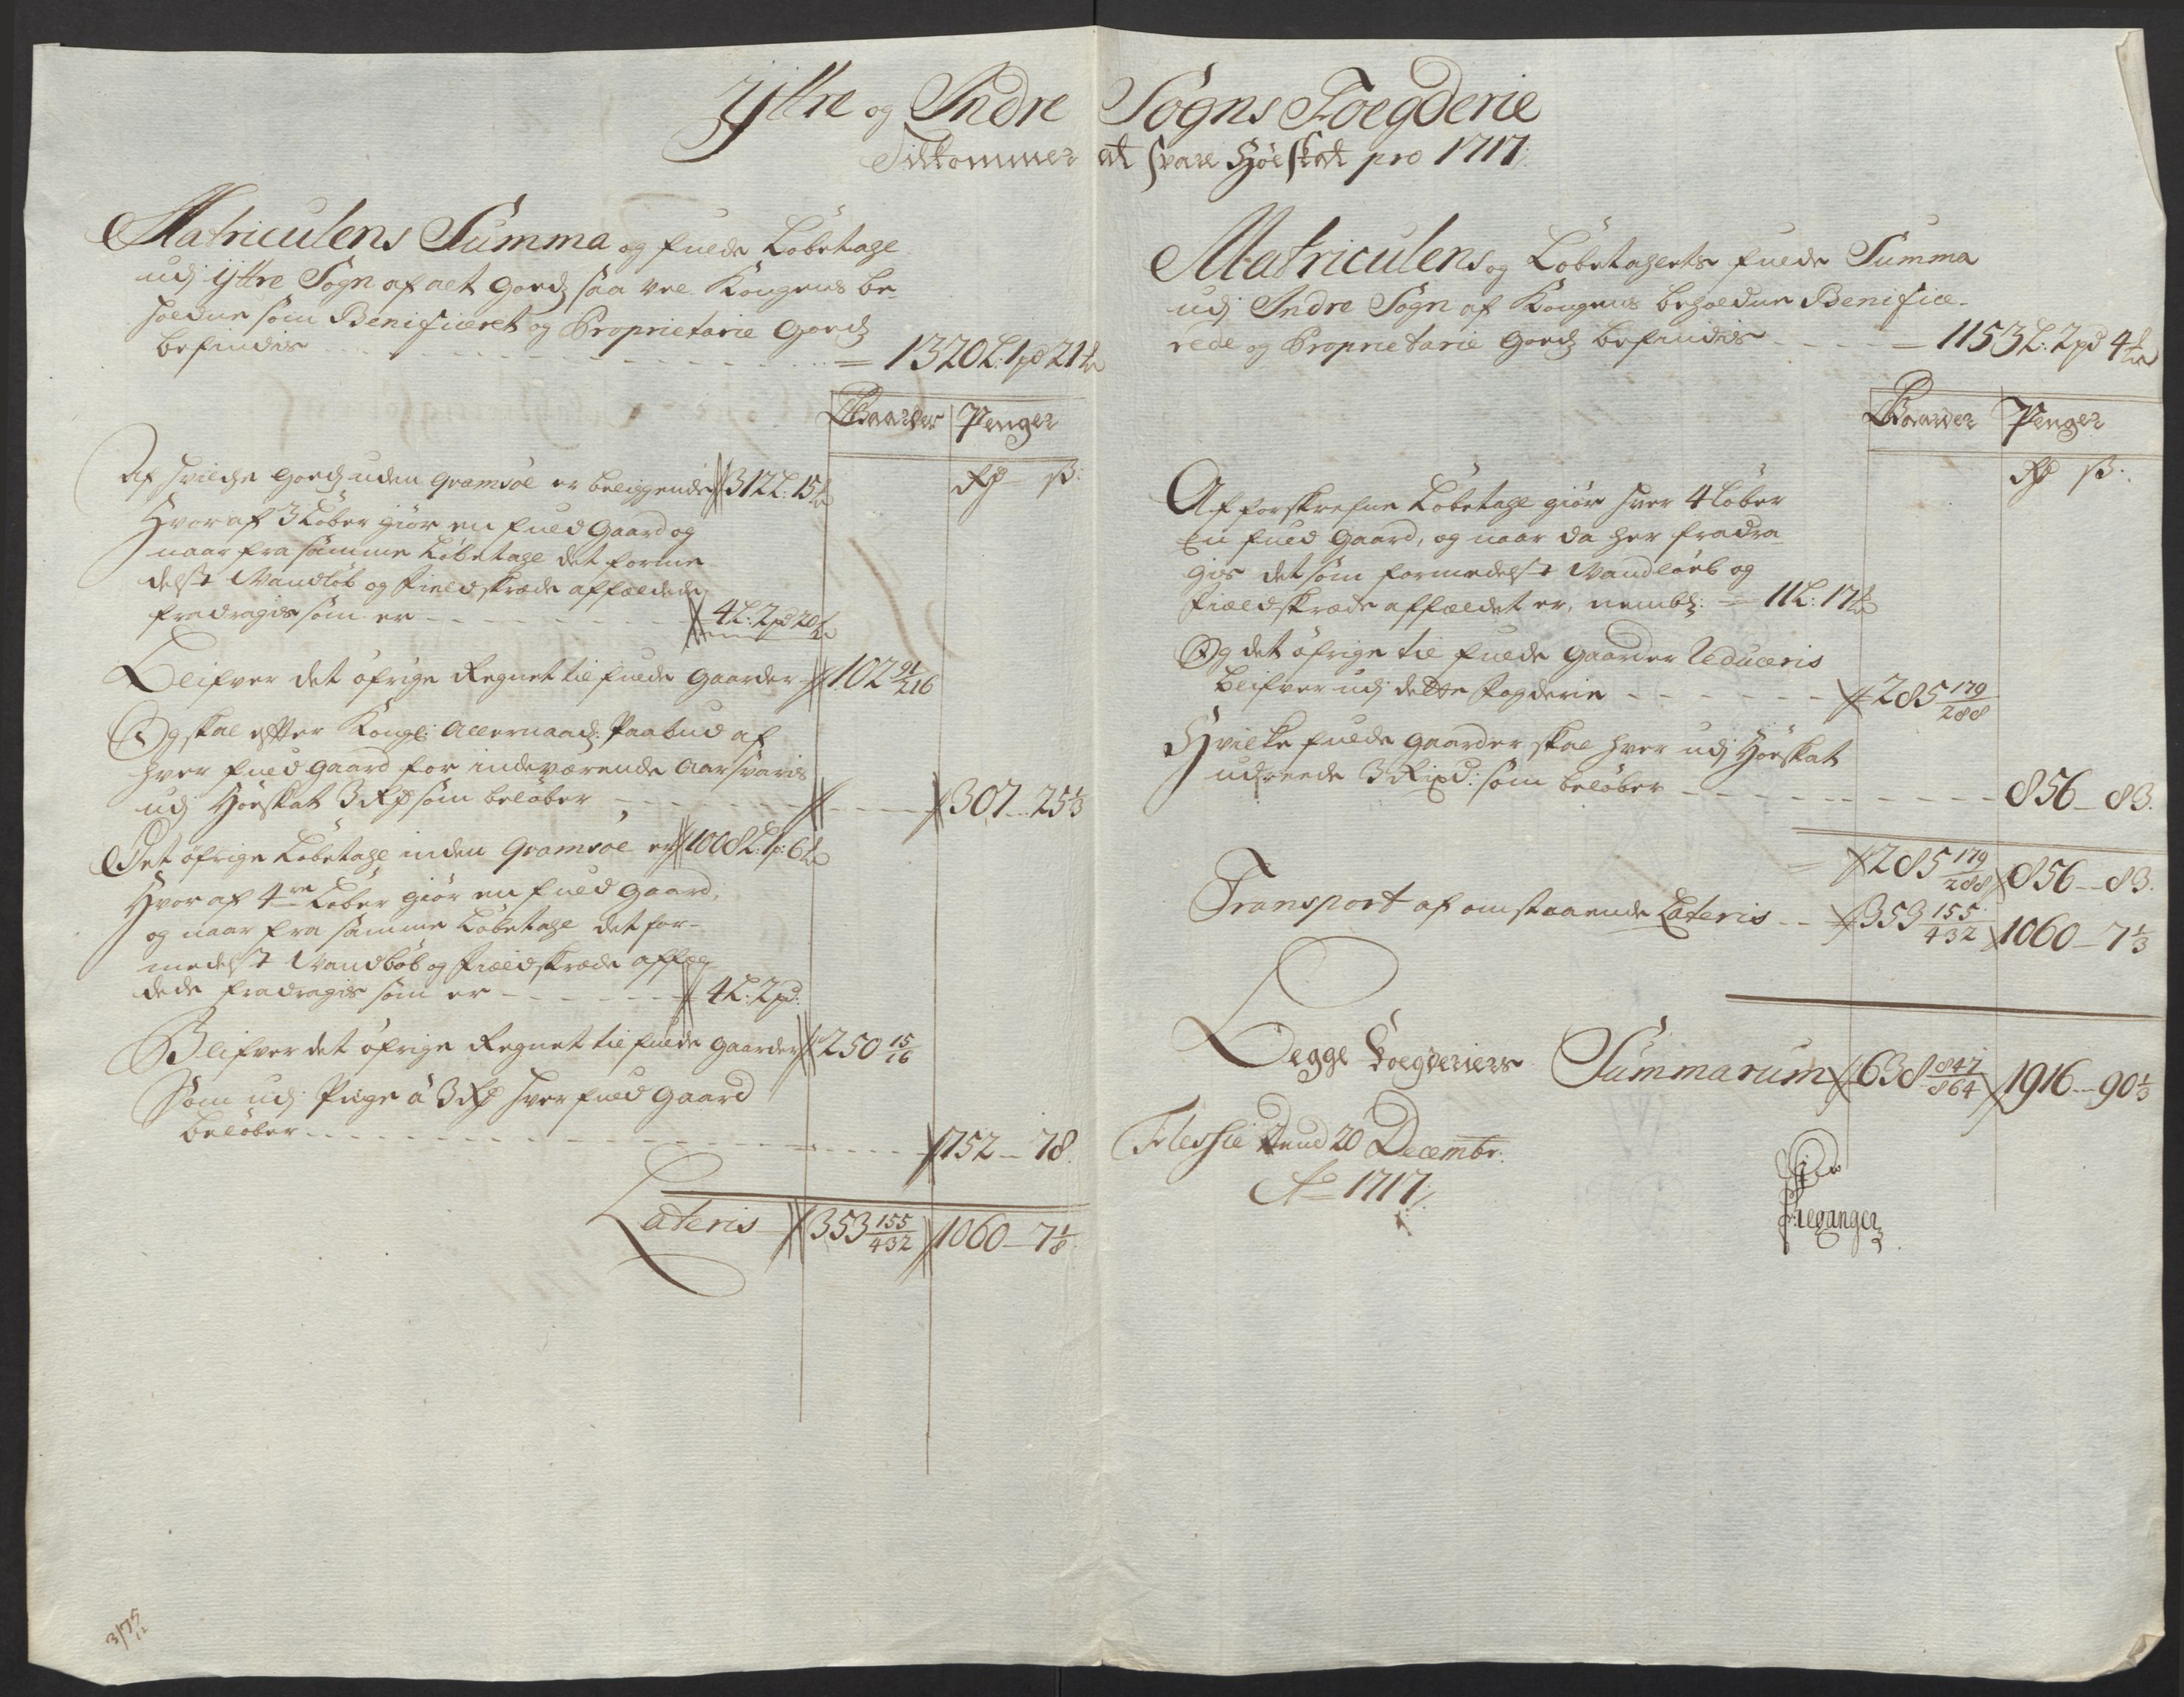 Yttre og Indre Sogns Foegderie
Tilkommer at svare Høeskat pro 1717
Matriculens Summa og fulde Løbetahl
udj Yttre Sogn af alt Goedz saa vel Kongens be-
holdne som Benificeret og Proprietarie Goedz
befindis = 1320 L: 1 pd 21 ℔
Gaarder Penger
Rd ß:
Af hvilche Goedz uden Gramsøe er beliggende 312 L: 15 ℔
Hvoraf 3 Løber giør en fuld Gaard og
naar fra samme Løbetahl det forme-
delst Vandløb og Fieldskrede affældede
fradragis som er 4 L: 2 pd 20 ℔
Blifver det øfrige Regnet til fulde Gaarder 102 91/216
Og skal efter Kongl: Allernaadz: Paabud af
hver fuld Gaard for indeværende Aar svaris
udj Høeskat 3 Rd som beløber 307 - 25 1/3
Det øfrige Løbetahl inden Gramsøe er 1008 L: 1 p: 6 ℔
Hvoraf 4re Løber giør en fuld Gaard,
og naar fra samme Løbetahl det for-
medelst Vandløb og Fieldskrede affæl
dede fradragis som er 4 L: 2 pd:
Blifver det øfrige Regnet til fulde Gaarder 250 15/16
Som udj Penge à 3 Rd hver fuld Gaard
beløber 752 - 78.
Lateris 353 155/432 1060 - 7 1/8
3/75
12
Matriculens og Løbetahlets fulde Summa
udj Indre Sogn af Kongens beholdne Benifice-
rede og Proprietarie Goedz befindis = 1153 L: 2 pd 4 ℔
Gaarder Penger
Rd ß:
Af forskrefne Løbetahl giør hver 4 Løber
En fuld Gaard, og naar da her fradra-
gis det som formedelst Vandløeb og
Fieldskrede affældet er, nembl: = 11 L: 17 ℔
Og det øfrige til fulde Gaarder Reduceris
blifver udj dette Fogderie 285 179/288
Hvilke fulde Gaarder skal hver udj Høeskat
udreede 3 Rixd: som beløber 856 - 83.
285 179/288 856 - 83.
Transport af omstaaende Lateris 353 155/432 1060 - 7 1/3
Begge Foegderiers Summarum 638 847/864 1916 - 90 1/3
Flesche dend 20 Decembr:
Ao 1717